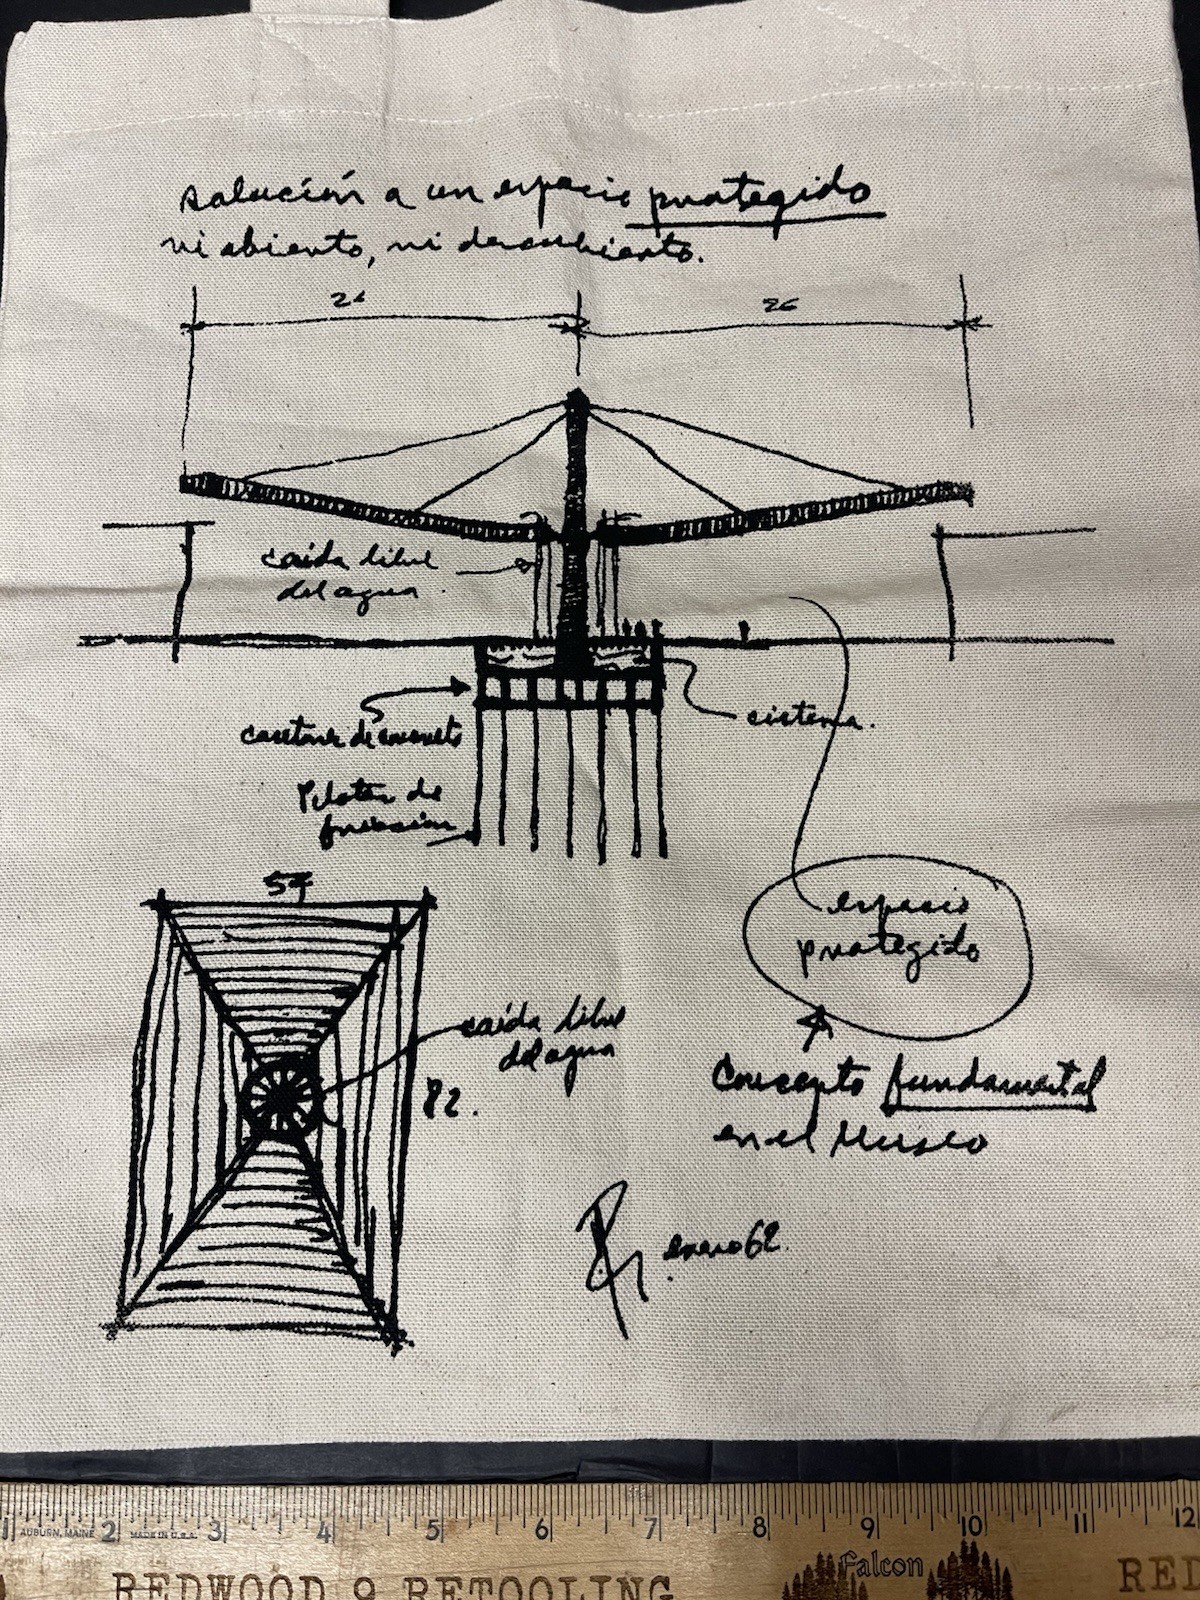 solución a un espacio protegido
ni abierto, ni descubierto.
26
26
caída libre
del agua.
cisterna.
de concreto
Pilotes de
fricción
54
espacio
protegido
caída libre
del agua
82.
Concepto fundamental
en el Museo
enero 62.
1 2 3 4 5 6 7 8 9 10 11 12
AUBURN, MAINE MADE IN U.S.A.
Falcon
REDWOOD & RETOOLING
RED